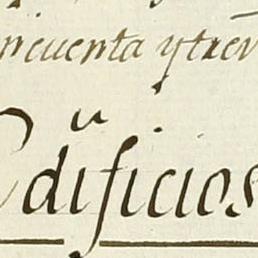 ncuenta ytres
Edificios